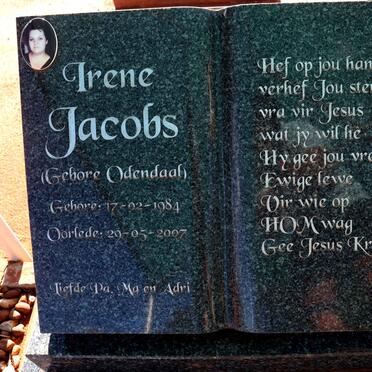 Irene
Jacobs
(Gebore Odendaal)
Gebore: 17-02-1984
Oorlede: 29-05-2007
Liefde Pa, Ma en Adri
Hef op jou han
verhef Jou ste
vra vir Jesus
wat jy wil he
Hy gee jou vre
Ewige lewe
Vir wie op
HOM wag
Gee Jesus Kr